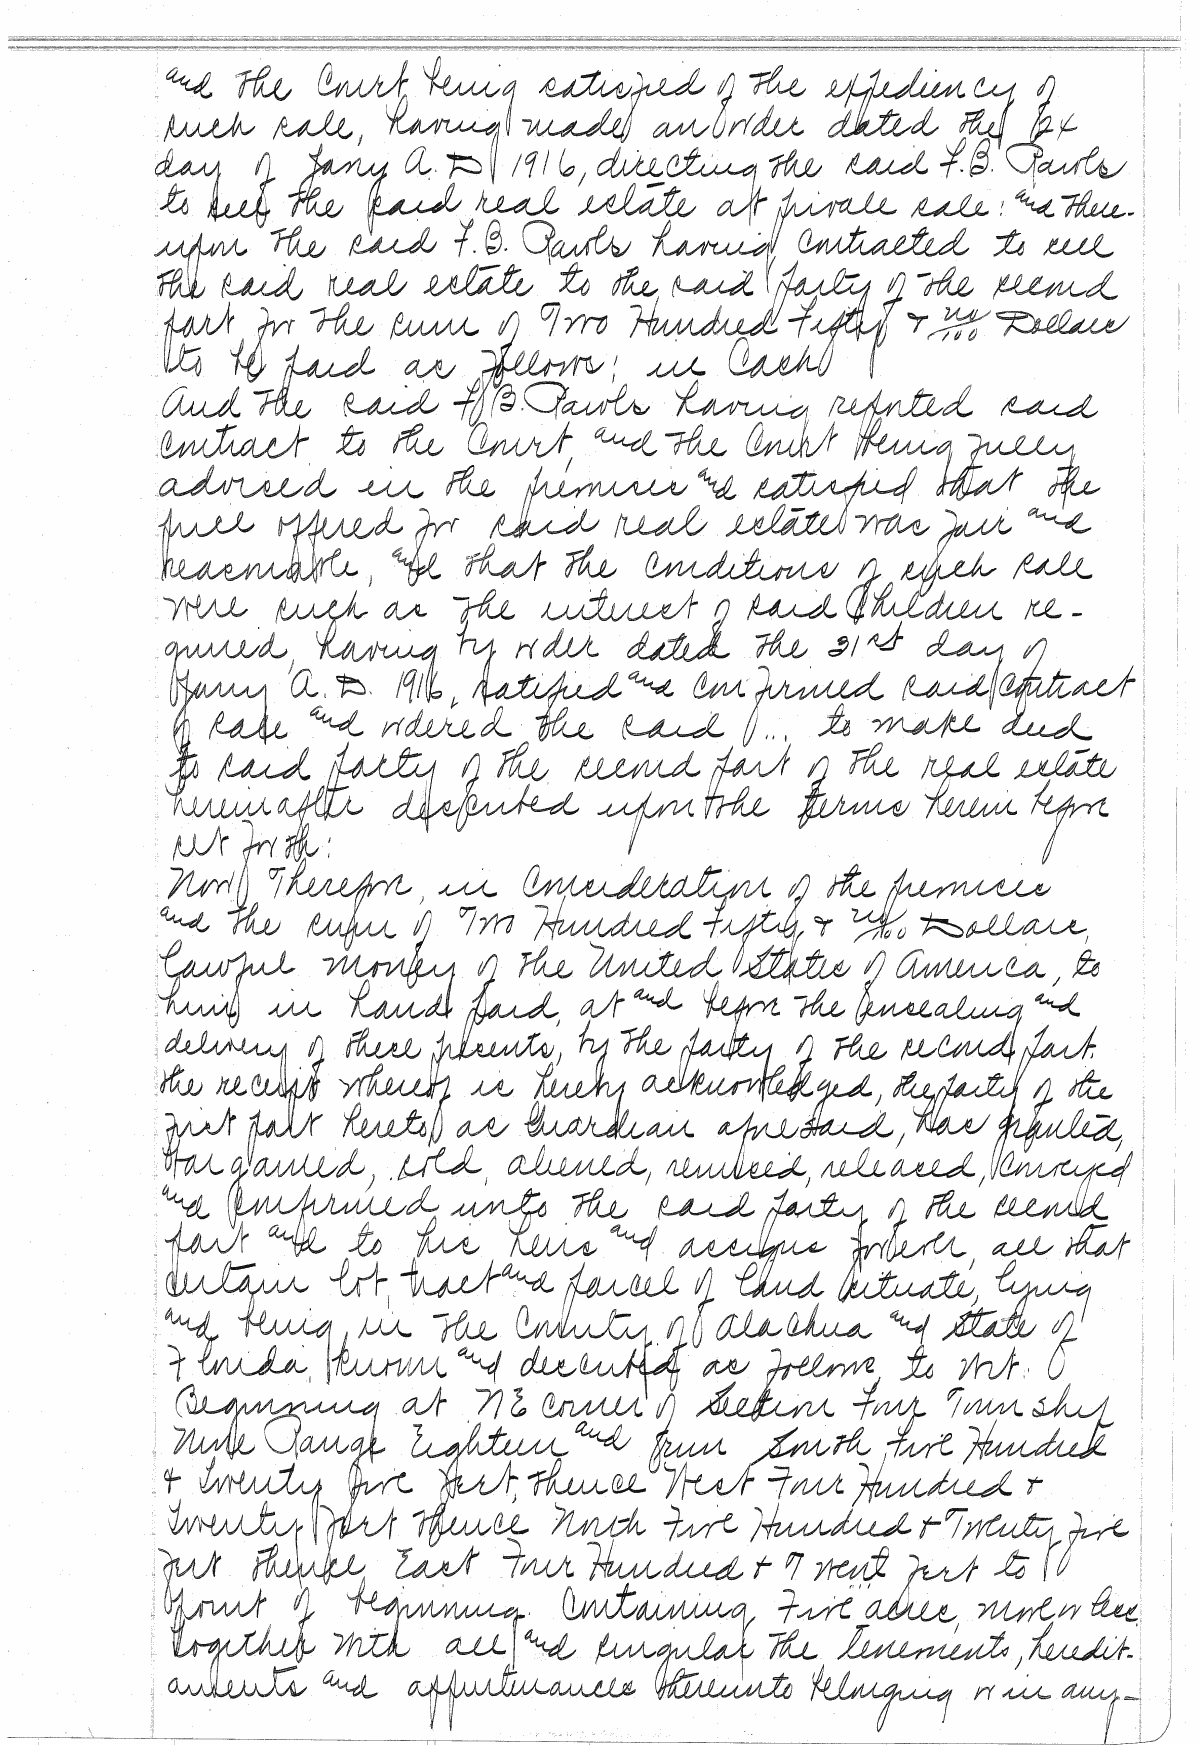 and the Court being satisfied of the expediency of
such sale, having made an order dated the 24
day of Jany A. D. 1916, directing the said F. B. Rawls
to sell the said real estate at private sale: and there-
upon the said F. B. Rawls having contracted to sell
the said real estate to the said party of the second
part for the sum of Two Hundred Fifty & no/100 Dollars
to be paid as follows: in Cash
And the said F. B. Rawls having reported said
contract to the Court, and the Court being fully
advised in the premises and satisfied that the
price offered for said real estate was fair and
reasonable, and that the conditions of such sale
were such as the interest of said Children re-
quired, having by order dated the 31st day of
Jany A. D. 1916, ratified and confirmed said contract
of sale and ordered the said ... to make deed
to said party of the second part of the real estate
hereinafter described upon the terms herein before
set forth:
Now Therefore, in consideration of the premises
and the sum of Two Hundred Fifty & no/100 Dollars,
lawful money of the United States of America, to
him in hand paid, at and before the ensealing and
delivery of these presents, by the party of the second part.
the receipt whereof is hereby acknowledged, the party of the
first part hereto as Guardian aforesaid, has granted,
bargained, sold, aliened, remised, released, conveyed
and confirmed unto the said party of the second
part and to his heirs and assigns forever, all that
certain lot, tract and parcel of land situate, lying
and being in the County of Alachua and State of
Florida, known and described as follows, to wit:
Beginning at NE corner of Section Four Township
Nine Range Eighteen and run South Five Hundred
& Twenty five feet, thence West Four Hundred &
Twenty feet thence North Five Hundred & Twenty five
feet thence East Four Hundred & Twent feet to
point of beginning. Containing Five acres, more or less
together with all and singular the tenements, heredit-
aments and appurtenances thereunto belonging or in any-